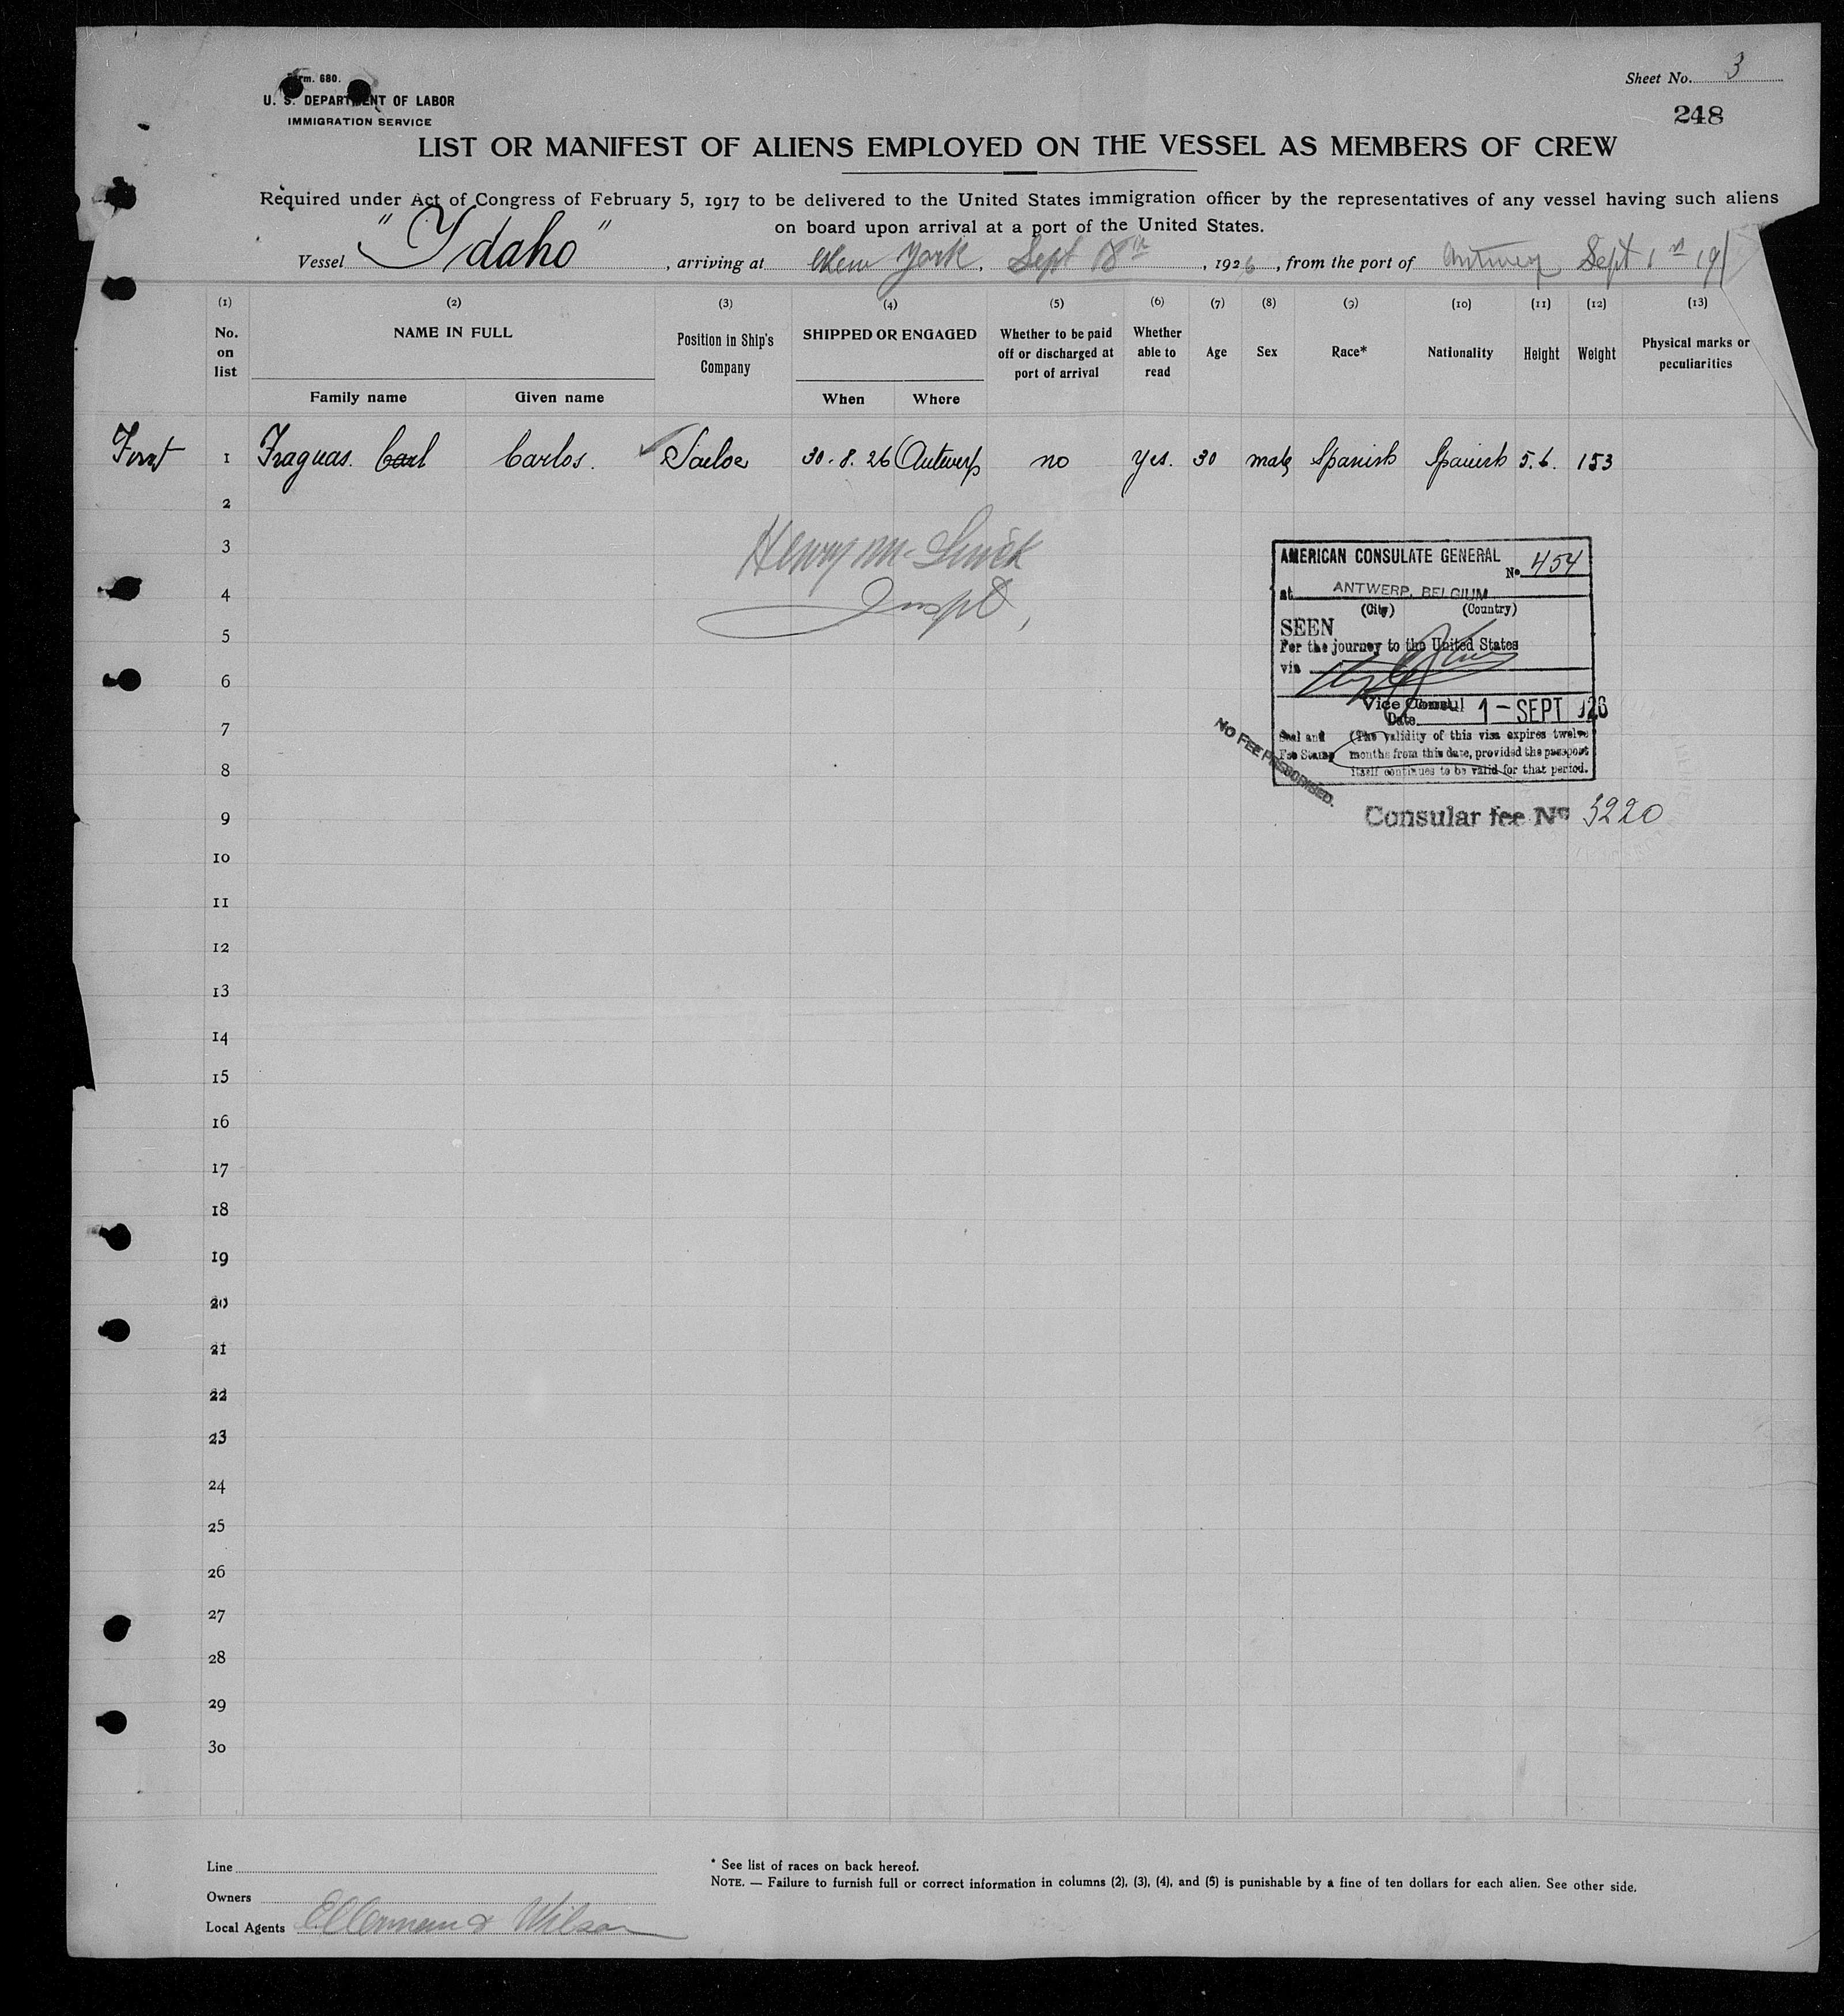 Form. 680.
U. S. DEPARTMENT OF LABOR
IMMIGRATION SERVICE
Sheet No. 3
248
LIST OR MANIFEST OF ALIENS EMPLOYED ON THE VESSEL AS MEMBERS OF CREW
Required under Act of Congress of February 5, 1917 to be delivered to the United States immigration officer by the representatives of any vessel having such aliens
on board upon arrival at a port of the United States.
Vessel "Ydaho", arriving at New York, Sept 18th, 1926, from the port of Antwerp Sept 1st 19
(1) (2) (3) (4) (5) (6) (7) (8) (9) (10) (11) (12) (13)
No. on list NAME IN FULL Position in Ship's Company SHIPPED OR ENGAGED Whether to be paid off or discharged at port of arrival Whether able to read Age Sex Race* Nationality Height Weight Physical marks or peculiarities
Family name Given name When Where
First 1 Fraguas. Carl Carlos. Sailor 30.8.26 Antwerp no yes. 30 male Spanish Spanish 5.6. 153
2
3
Henry
4
Inspt,
5
6
7
8
9
10
11
12
13
14
15
16
17
18
19
20
21
22
23
24
25
26
27
28
29
30
AMERICAN CONSULATE GENERAL
No. 454
at ANTWERP, BELGIUM
(City) (Country)
SEEN
For the journey to the United States
via
Vice Consul
Date 1 - SEPT 1926
Seal and Fee Stamp
(The validity of this visa expires twelve
months from this date, provided the passport
itself continues to be valid for that period.
NO FEE PRESCRIBED.
Consular fee No 5220
Line
Owners
Local Agents Ellerman & Wilson
* See list of races on back hereof.
NOTE. — Failure to furnish full or correct information in columns (2), (3), (4), and (5) is punishable by a fine of ten dollars for each alien. See other side.